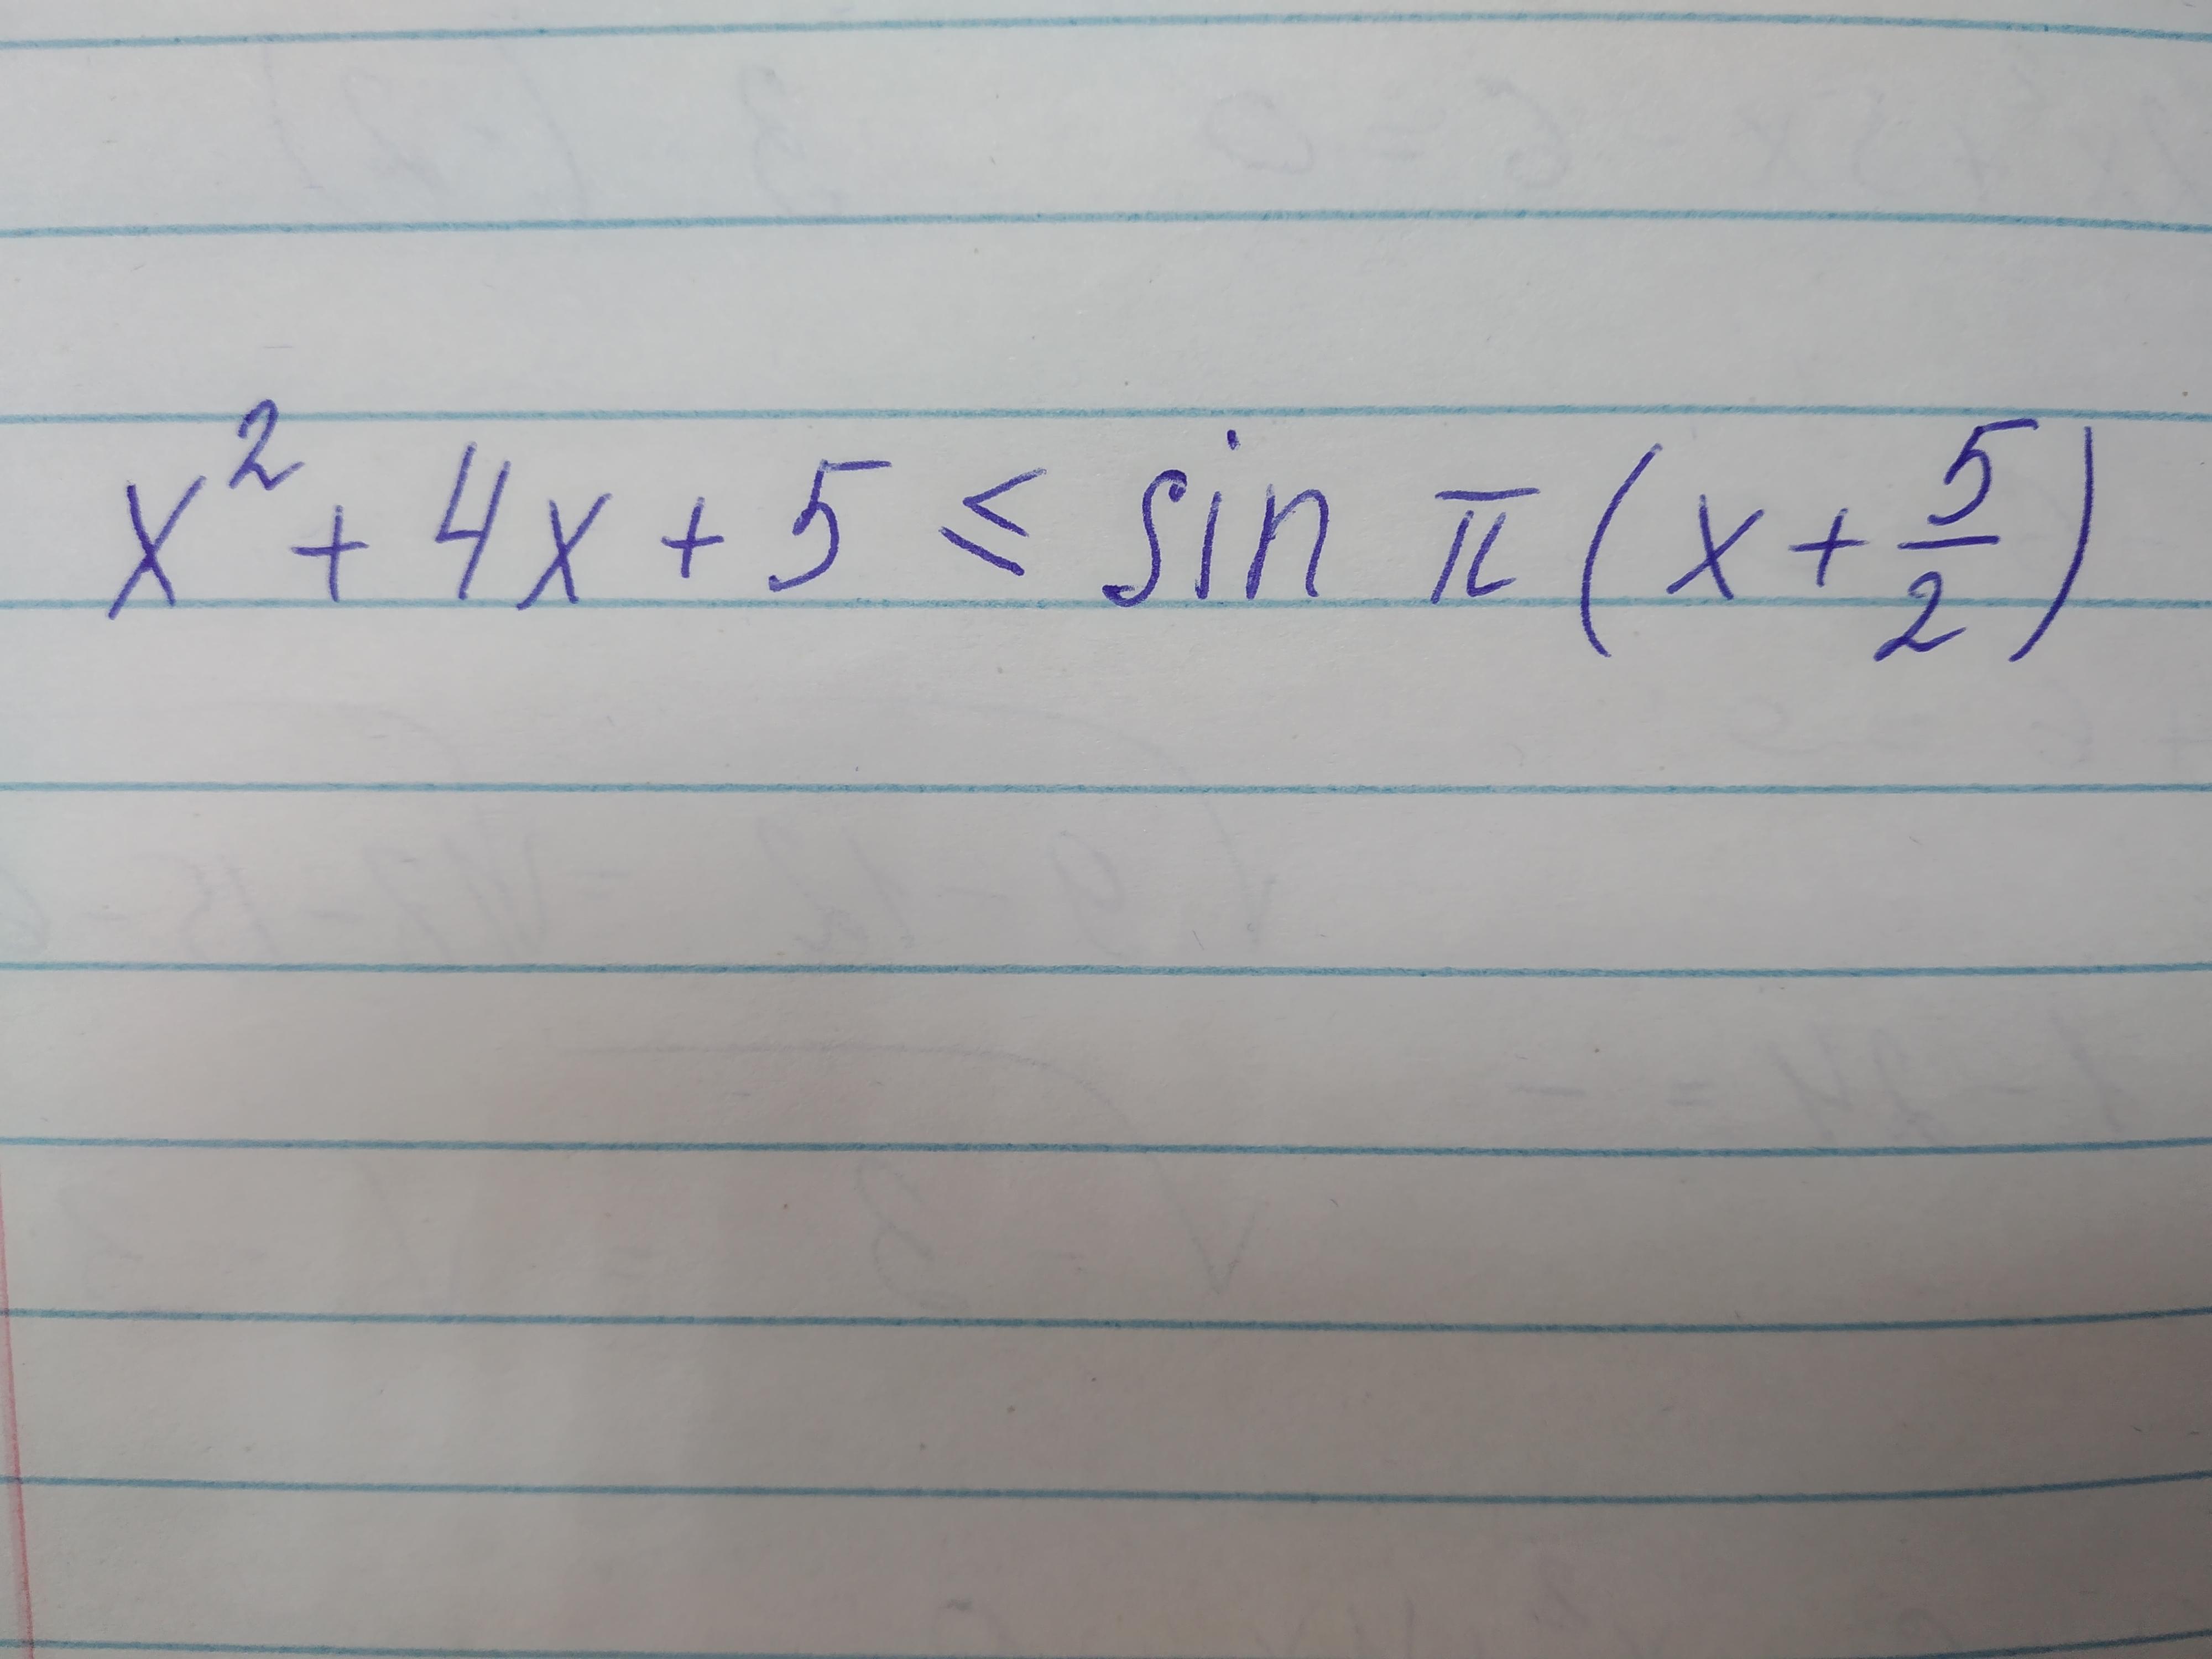 x² + 4x + 5 ≤ sin π (x + 5/2)